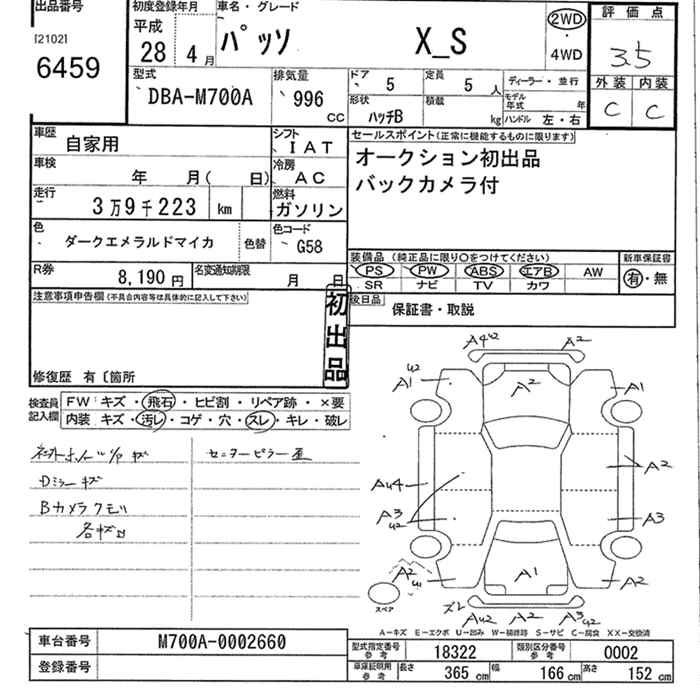 出品番号
[2102]
6459
初度登録年月
平成
28 4 月
車名・グレード
パッソ X_S
2WD
・
4WD
評価点
3.5
外装 内装
C C
型式
DBA-M700A
排気量
996 CC
ドア 5
定員 5 人
形状 ハッチB
積載 kg
ディーラー・並行
モデル年式 年
ハンドル 左・右
車歴 自家用
シフト IAT
車検 年 月( 日)
冷房 AC
走行 3万9千223 km
燃料 ガソリン
色 ダークエメラルドマイカ 色替
色コード G58
R券 8,190 円
名変通知期限 月 日
セールスポイント(正常に機能するものに限ります)
オークション初出品
バックカメラ付
装備品 (純正品に限り○をつけてください)
PS PW ABS エアB AW
SR ナビ TV カワ
新車保証書
有・無
後日品 保証書・取説
注意事項申告欄(不具合内容等は具体的に記入して下さい)
初出品
修復歴 有〔箇所
検査員記入欄
FW キズ・飛石・ヒビ割・リペア跡・×要
内装 キズ・汚レ・コゲ・穴・スレ・キレ・破レ
Dミラーキズ
Bカメラクモリ
センターピラー歪
A4U2 A2
U2
A1 A2 A1
AU4 A2
A3
U2 A3
A2
U1 A1 A2
スペア
ズレ AU2 A2 A3
U2
A-キズ E-エクボ U-凹み W-補修跡 S-サビ C-腐食 XX-交換済
車台番号 M700A-0002660
登録番号
型式指定番号 参考 18322
類別区分番号 参考 0002
車庫証明用 参考 長さ 365 cm 幅 166 cm 高さ 152 cm